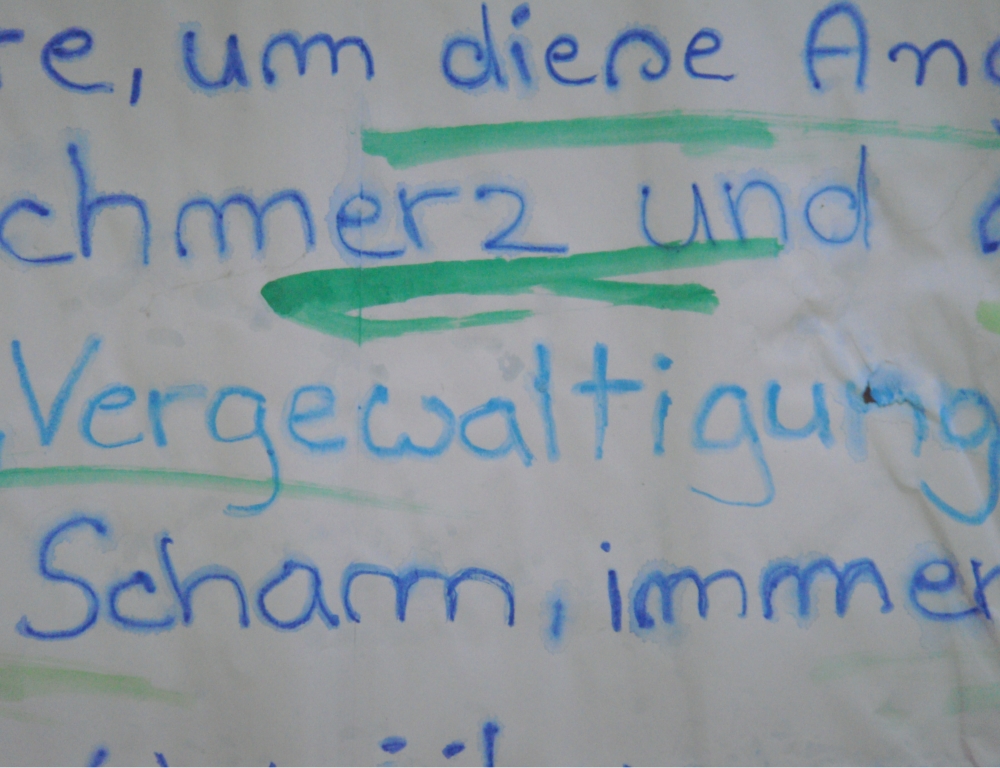 re, um diese An
chmerz und
Vergewaltigung
Scham, immer